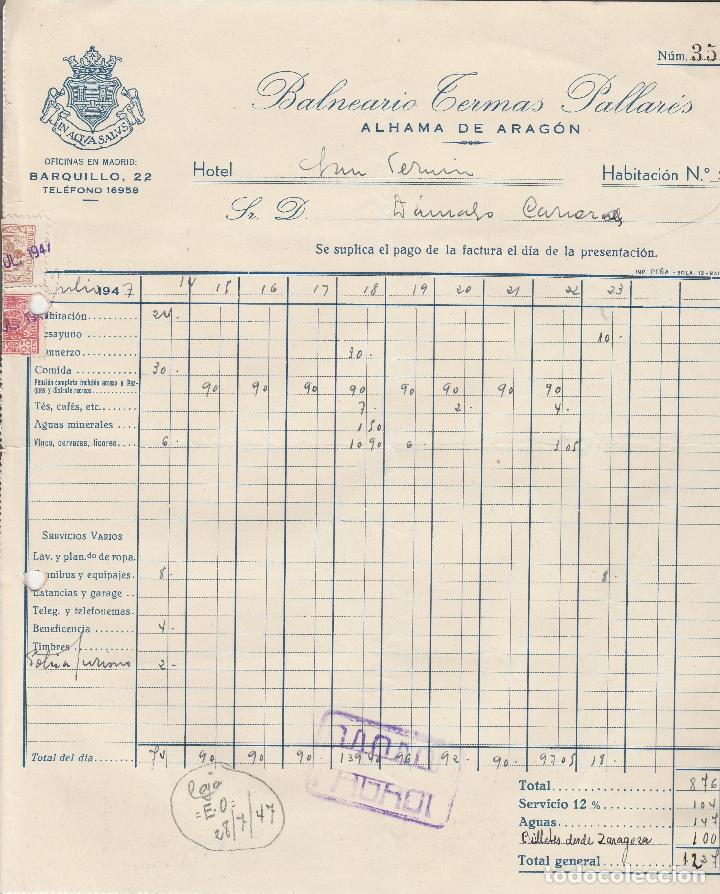 Núm. 35
Balneario Termas Pallarés
ALHAMA DE ARAGÓN
IN AQVA SALVS
OFICINAS EN MADRID:
BARQUILLO, 22
TELÉFONO 16958
Hotel San Fermin
Habitación N.º
Sr. D Dámaso
Se suplica el pago de la factura el día de la presentación.
JUL. 1947
Julio 1947 14 15 16 17 18 19 20 21 22 23
bitación 24.
esayuno 10.
muerzo 30.
Comida 30.
Pensión completa incluído acceso a Parques y disfrute recreos 90 90 90 90 90 90 90 90
Tés, cafés, etc. 7. 2. 4.
Aguas minerales 1 50
Vinos, cervezas, licores 6. 10 90 6. 3 05
SERVICIOS VARIOS
Lav. y plan.do de ropa.
nibus y equipajes 8. 8.
Estancias y garage
Teleg. y telefonemas.
Beneficencia 4.
Timbres
2.
Total del día 74 90 90 90 139 40 96 92 90 97 05 18
Total 876
Servicio 12 % 104
Aguas 147
Billetes desde Zaragoza 100
Total general 1227
Caja
E.O.
28/7/47
todocoleccion.net